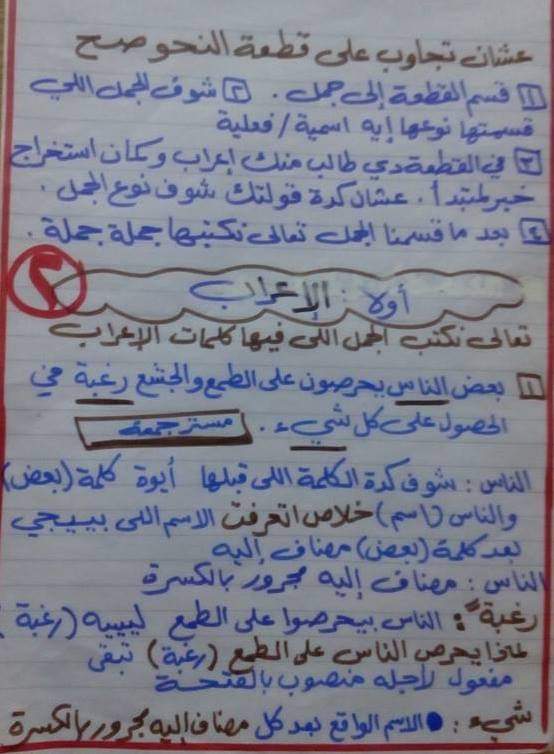 عشان تجاوب على قطعة النحو صح
١ قسم القطعة إلى جمل . ٢ شوف الجمل اللي
قسمتها نوعها إيه اسمية / فعلية
٣ في القطعة دي طالب منك إعراب وكان استخراج
خبر لمبتدأ . عشان كدة قولتلك شوف نوع الجمل .
٤ بعد ما قسمنا الجمل تعالى نكتبها جملة جملة .
٢ أولا : الإعراب
تعالى نكتب الجمل اللى فيها كلمات الإعراب
١ بعض الناس يحرصون على الطمع والجشع رغبة في
الحصول على كل شيء . مستر جمعه
الناس : شوف كدة الكلمة اللى قبلها أيوة كلمة (بعض)
والناس (اسم) خلاص اتعرفت الاسم اللى بييجي
بعد كلمة (بعض) مضاف إليه
الناس : مضاف إليه مجرور بالكسرة
رغبة : الناس بيحرصوا على الطمع ليييه (رغبة)
لماذا يحرص الناس على الطمع (رغبة) تبقى
مفعول لأجله منصوب بالفتحة
شيء : الاسم الواقع بعد كل مضاف إليه مجرور بالكسرة